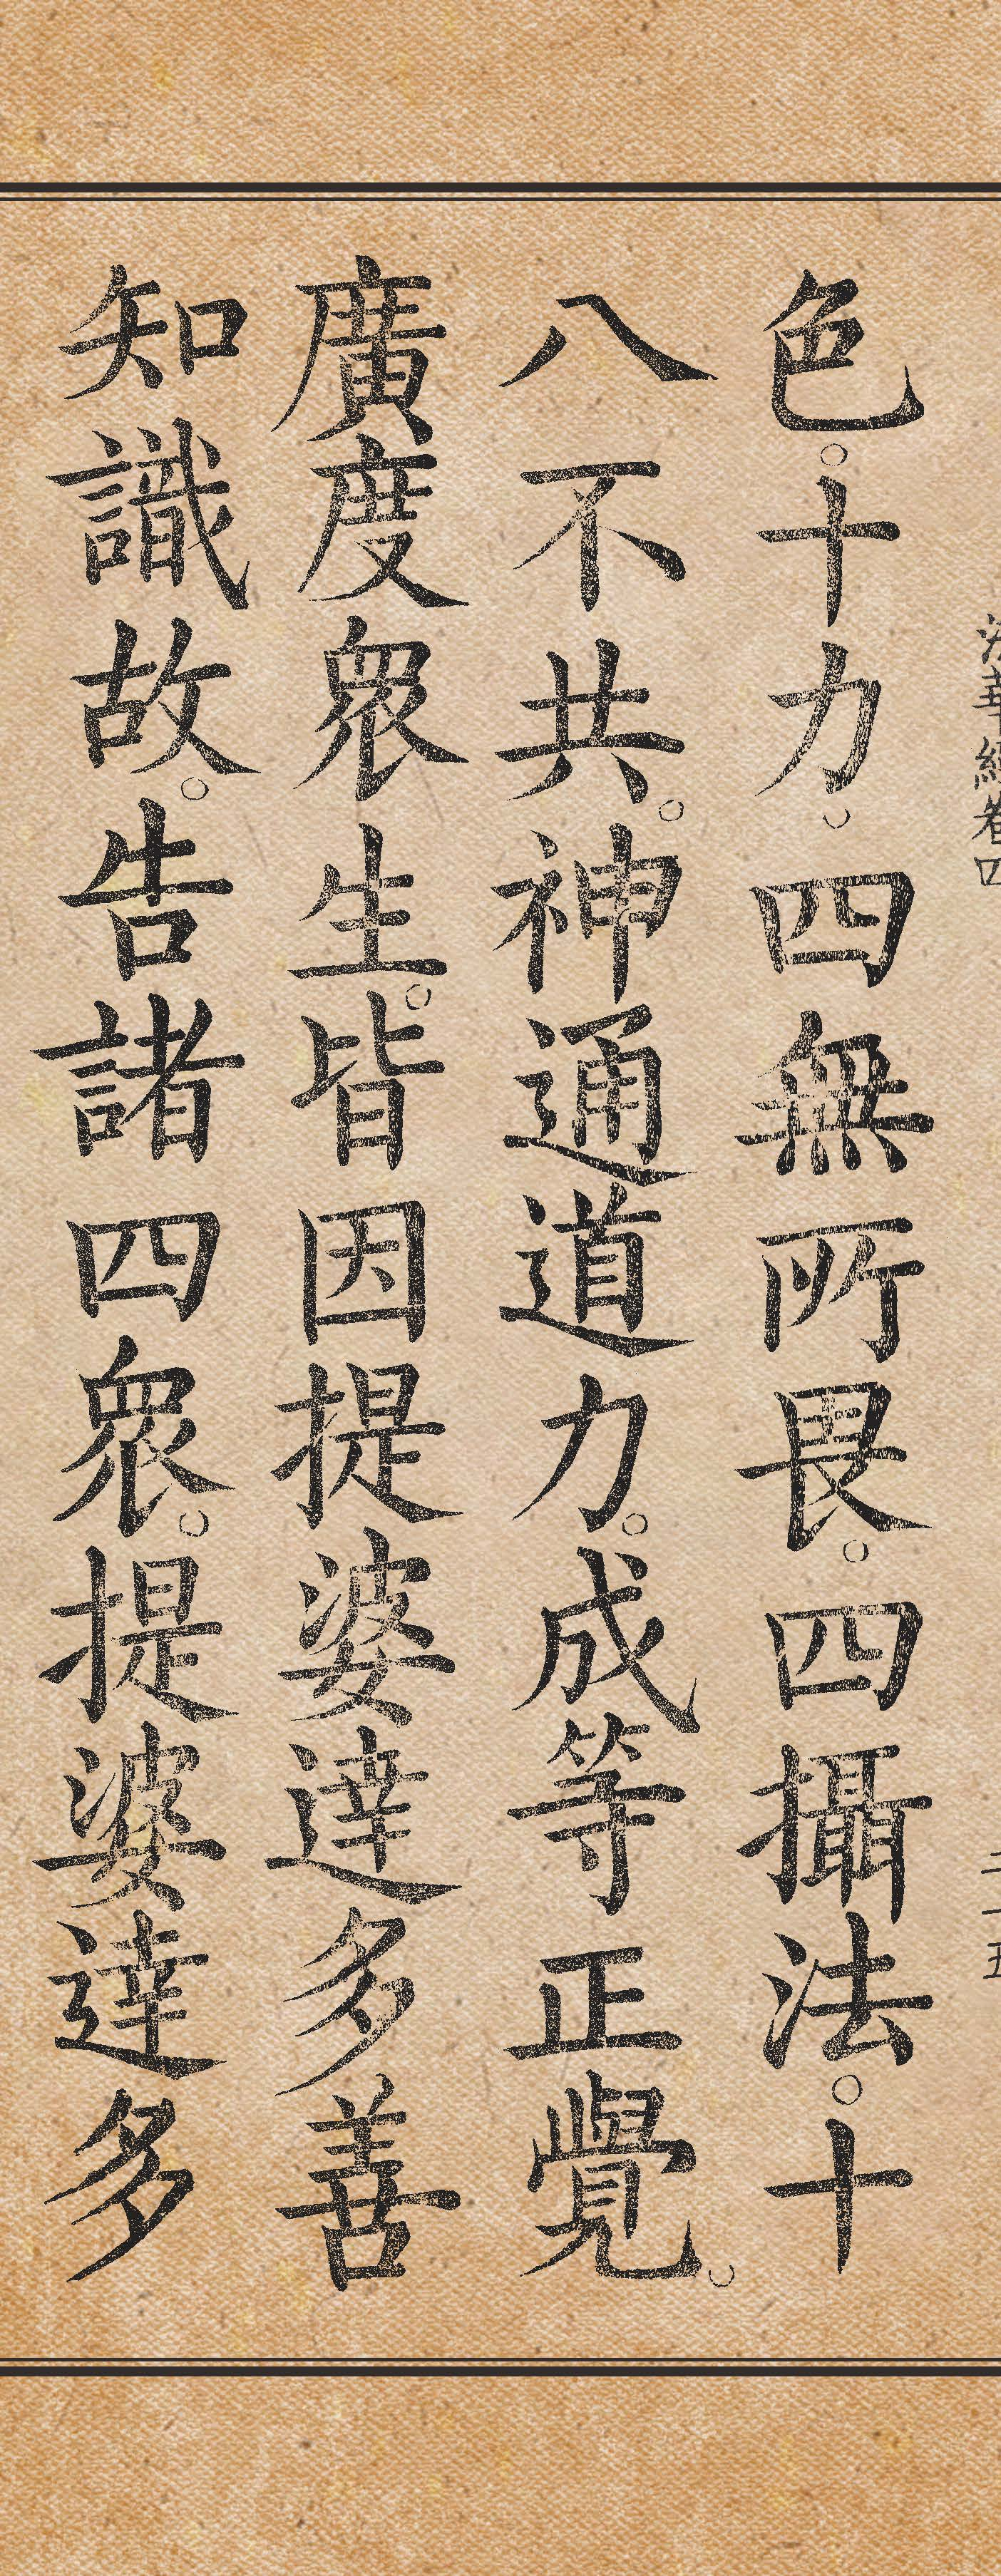 法華經卷四
二一五
色。十力。四無所畏。四攝法。十
八不共。神通道力。成等正覺。
廣度眾生。皆因提婆達多善
知識故。告諸四眾。提婆達多